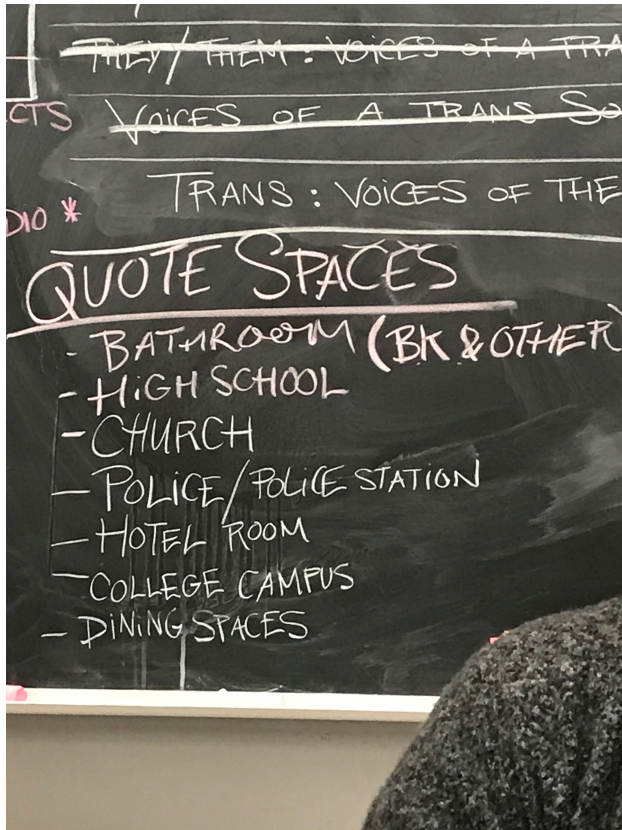 THEY/THEM: VOICES OF A TRA
CTS VOICES OF A TRANS SO
TRANS: VOICES OF THE
DIO *
QUOTE SPACES
- BATHROOM (BK & OTHER)
- HIGH SCHOOL
- CHURCH
- POLICE/POLICE STATION
- HOTEL ROOM
- COLLEGE CAMPUS
- DINING SPACES